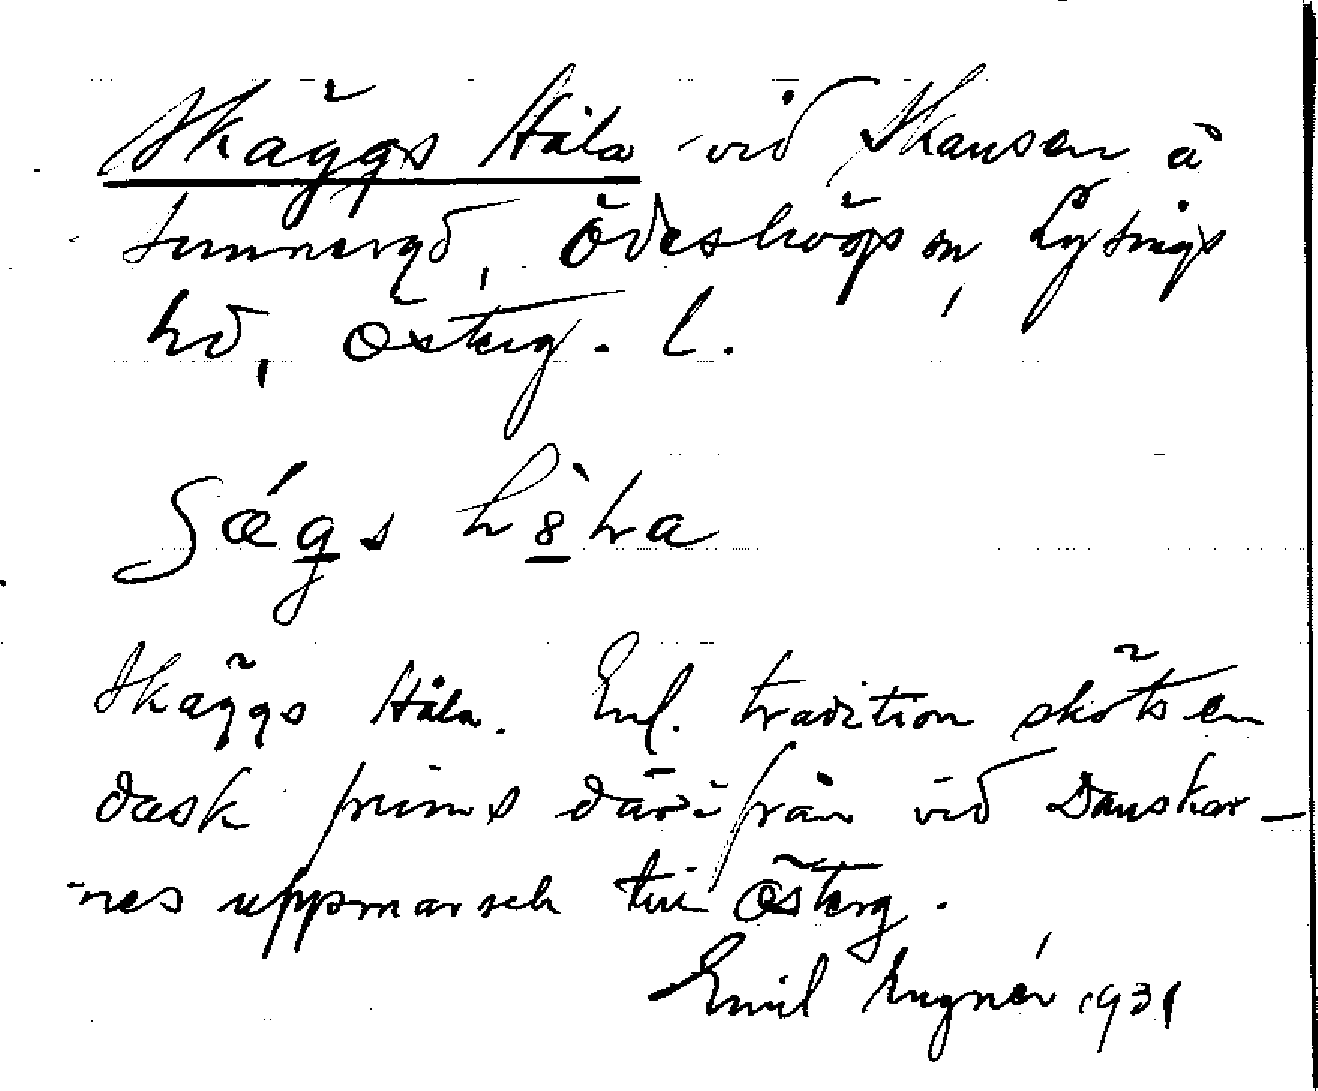 Skäggs Håla vid Skansen å
Sunneryd, Ödeshögs sn, Lysings
hd, Österg. l.
Sǽgs
Skäggs Håla. Enl. tradition sköts en
dansk prins därifrån vid Danskar-
nes uppmarsch till Österg.
Emil Engnér 1931